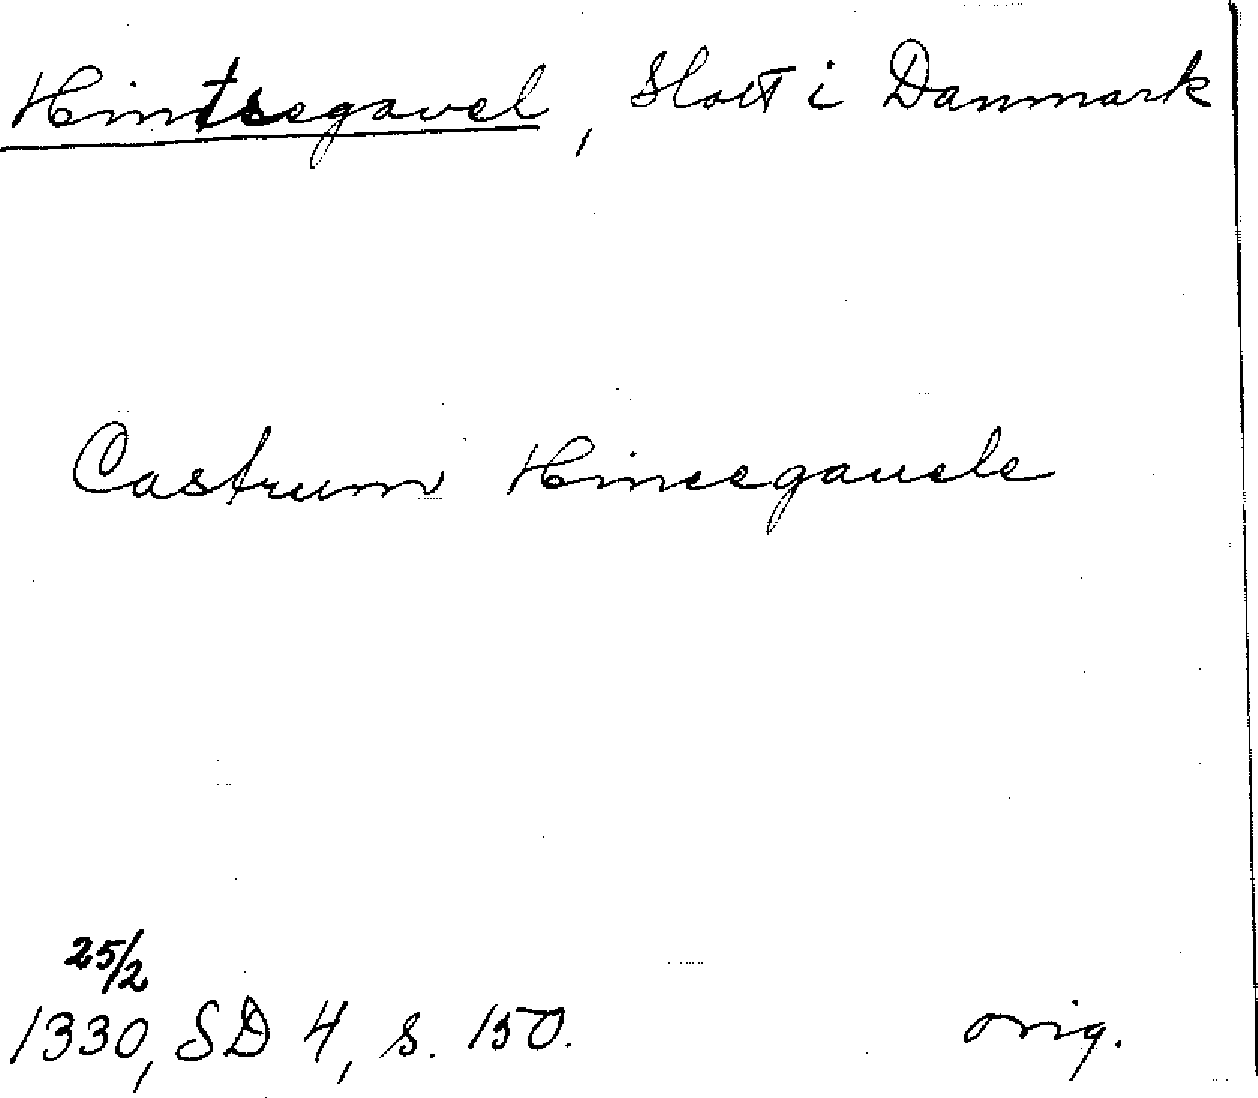 Hintsegavel, Slott i Danmark
Castrum Hinsegauele
25/2
1330, SD 4, s. 150. orig.